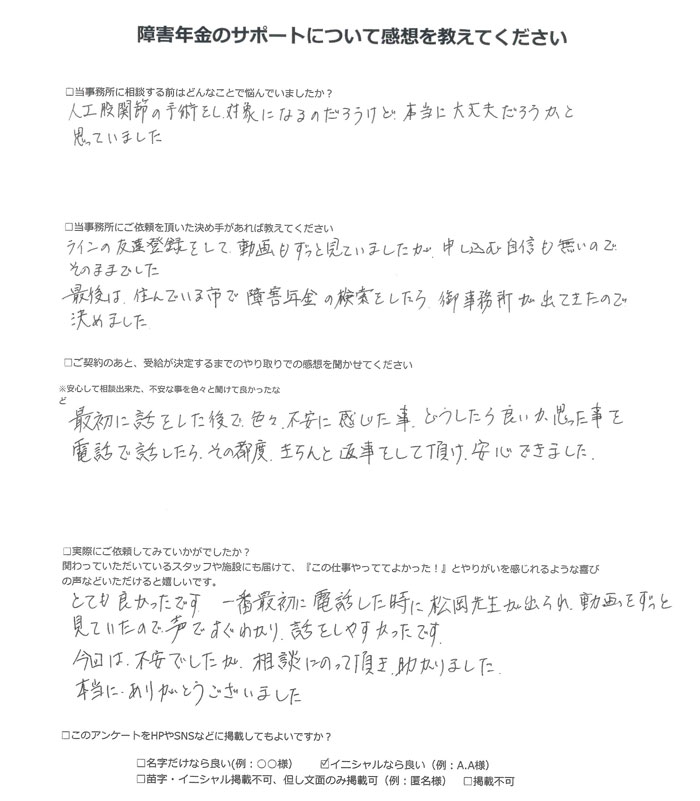 障害年金のサポートについて感想を教えてください
□当事務所に相談する前はどんなことで悩んでいましたか？
人工股関節の手術をし、対象になるのだろうけど、本当に大丈夫だろうか、と
思っていました
□当事務所にご依頼を頂いた決め手があれば教えてください
ラインの友達登録をして、動画もずっと見ていましたが、申し込む自信も無いので
そのままでした
最後は、住んでいる市で障害年金の検索をしたら、御事務所が出てきたので
決めました
□ご契約のあと、受給が決定するまでのやり取りでの感想を聞かせてください
※安心して相談出来た、不安な事を色々と聞けて良かったな
ど
最初に話をした後で、色々、不安に感じた事、どうしたら良いか、思った事を
電話で話したら、その都度、きちんと返事をして頂け、安心できました。
□実際にご依頼してみていかがでしたか？
関わっていただいているスタッフや施設にも届けて、『この仕事やっててよかった！』とやりがいを感じれるような喜び
の声などいただけると嬉しいです。
とても良かったです 一番最初に電話した時に松岡先生が出られ、動画をずっと
見ていたので、声ですぐわかり、話をしやすかったです。
今回は、不安でしたが、相談にのって頂き、助かりました。
本当に、ありがとうございました
□このアンケートをHPやSNSなどに掲載してもよいですか？
□名字だけなら良い(例：〇〇様） ☑イニシャルなら良い（例：A.A様）
□苗字・イニシャル掲載不可、但し文面のみ掲載可（例：匿名様） □掲載不可